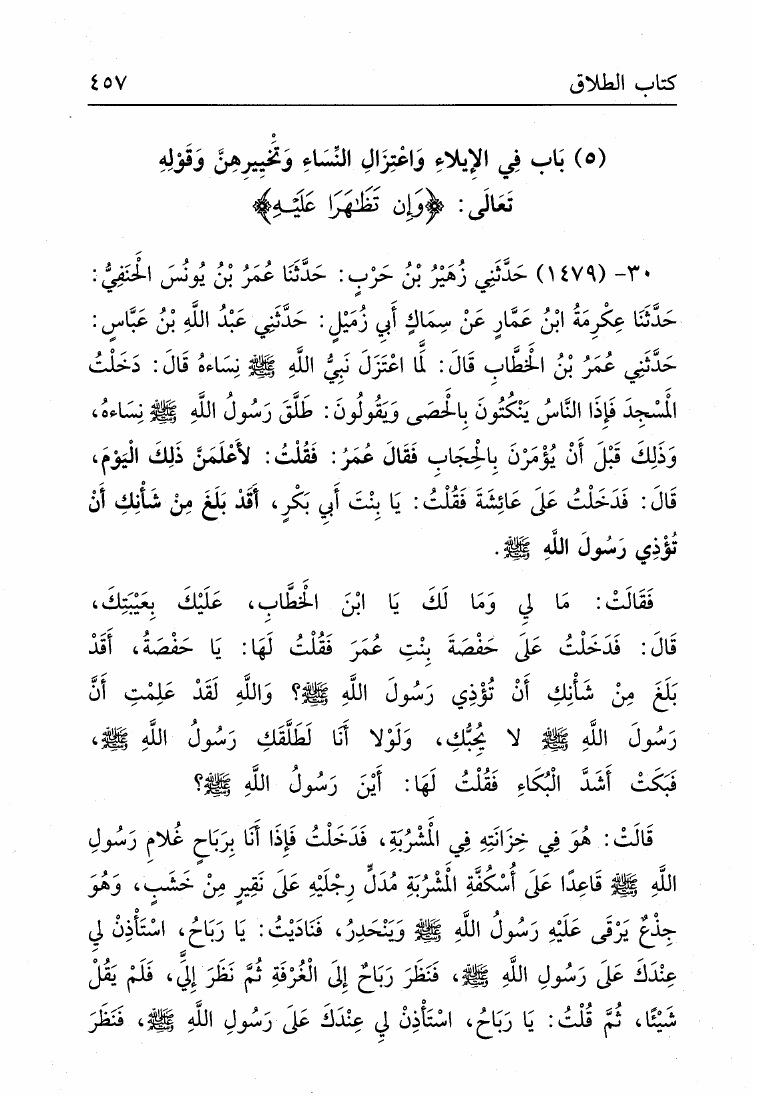 كتاب الطلاق ٤٥٧
(٥) بَاب فِي الإِيلاءِ وَاعْتِزَالِ النِّسَاءِ وَتَخْيِيرِهِنَّ وَقَوْلِهِ
تَعَالَى: ﴿وَإِن تَظَٰهَرَا عَلَيْهِ﴾
٣٠- (١٤٧٩) حَدَّثَنِي زُهَيْرُ بْنُ حَرْبٍ: حَدَّثَنَا عُمَرُ بْنُ يُونُسَ الْحَنَفِيُّ:
حَدَّثَنَا عِكْرِمَةُ ابْنُ عَمَّارٍ عَنْ سِمَاكٍ أَبِي زُمَيْلٍ: حَدَّثَنِي عَبْدُ اللَّهِ بْنُ عَبَّاسٍ:
حَدَّثَنِي عُمَرُ بْنُ الْخَطَّابِ قَالَ: لَمَّا اعْتَزَلَ نَبِيُّ اللَّهِ ﷺ نِسَاءهُ قَالَ: دَخَلْتُ
الْمَسْجِدَ فَإِذَا النَّاسُ يَنْكُتُونَ بِالْحَصَى وَيَقُولُونَ: طَلَّقَ رَسُولُ اللَّهِ ﷺ نِسَاءهُ،
وَذَلِكَ قَبْلَ أَنْ يُؤْمَرْنَ بِالْحِجَابِ فَقَالَ عُمَرُ: فَقُلْتُ: لأَعْلَمَنَّ ذَلِكَ الْيَوْمَ،
قَالَ: فَدَخَلْتُ عَلَى عَائِشَةَ فَقُلْتُ: يَا بِنْتَ أَبِي بَكْرٍ، أَقَدْ بَلَغَ مِنْ شَأْنِكِ أَنْ
تُؤْذِي رَسُولَ اللَّهِ ﷺ.
فَقَالَتْ: مَا لِي وَمَا لَكَ يَا ابْنَ الْخَطَّابِ، عَلَيْكَ بِعَيْبَتِكَ،
قَالَ: فَدَخَلْتُ عَلَى حَفْصَةَ بِنْتِ عُمَرَ فَقُلْتُ لَهَا: يَا حَفْصَةُ، أَقَدْ
بَلَغَ مِنْ شَأْنِكِ أَنْ تُؤْذِي رَسُولَ اللَّهِ ﷺ؟ وَاللَّهِ لَقَدْ عَلِمْتِ أَنَّ
رَسُولَ اللَّهِ ﷺ لا يُحِبُّكِ، وَلَوْلا أَنَا لَطَلَّقَكِ رَسُولُ اللَّهِ ﷺ،
فَبَكَتْ أَشَدَّ الْبُكَاءِ فَقُلْتُ لَهَا: أَيْنَ رَسُولُ اللَّهِ ﷺ؟
قَالَتْ: هُوَ فِي خِزَانَتِهِ فِي الْمَشْرُبَةِ، فَدَخَلْتُ فَإِذَا أَنَا بِرَبَاحٍ غُلامِ رَسُولِ
اللَّهِ ﷺ قَاعِدًا عَلَى أُسْكُفَّةِ الْمَشْرُبَةِ مُدَلٍّ رِجْلَيْهِ عَلَى نَقِيرٍ مِنْ خَشَبٍ، وَهُوَ
جِذْعٌ يَرْقَى عَلَيْهِ رَسُولُ اللَّهِ ﷺ وَيَنْحَدِرُ، فَنَادَيْتُ: يَا رَبَاحُ، اسْتَأْذِنْ لِي
عِنْدَكَ عَلَى رَسُولِ اللَّهِ ﷺ، فَنَظَرَ رَبَاحٌ إِلَى الْغُرْفَةِ ثُمَّ نَظَرَ إِلَيَّ، فَلَمْ يَقُلْ
شَيْئًا، ثُمَّ قُلْتُ: يَا رَبَاحُ، اسْتَأْذِنْ لِي عِنْدَكَ عَلَى رَسُولِ اللَّهِ ﷺ، فَنَظَرَ